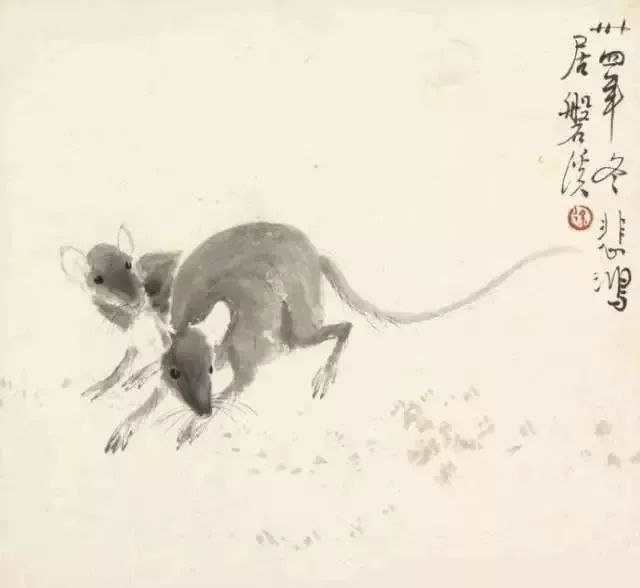 卅四年冬悲鴻
居磐溪